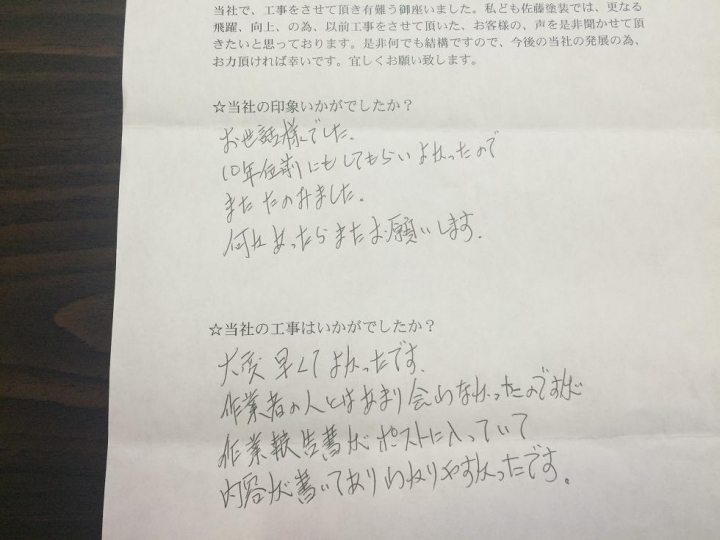 当社で、工事をさせて頂き有難う御座いました。私ども佐藤塗装では、更なる
飛躍、向上、の為、以前工事をさせて頂いた、お客様の、声を是非聞かせて頂
きたいと思っております。是非何でも結構ですので、今後の当社の発展の為、
お力頂ければ幸いです。宜しくお願い致します。
☆当社の印象いかがでしたか？
お世話様でした。
10年位前にもしてもらいよかったので
またたのみました。
何かあったらまたお願いします。
☆当社の工事はいかがでしたか？
大変早くてよかったです。
作業者の人とはあまり会わなかったのですが
作業報告書がポストに入っていて
内容が書いてありわかりやすかったです。